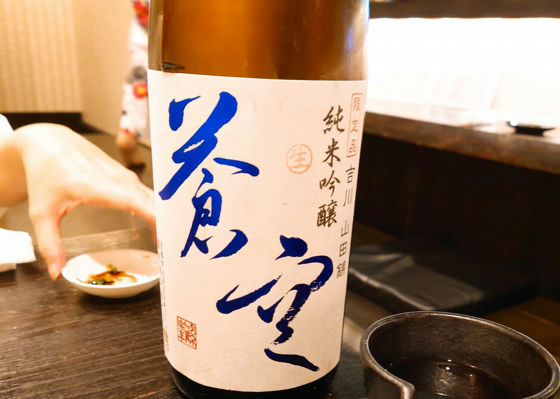 限定品 吉川 山田錦
純米吟醸
生
蒼空